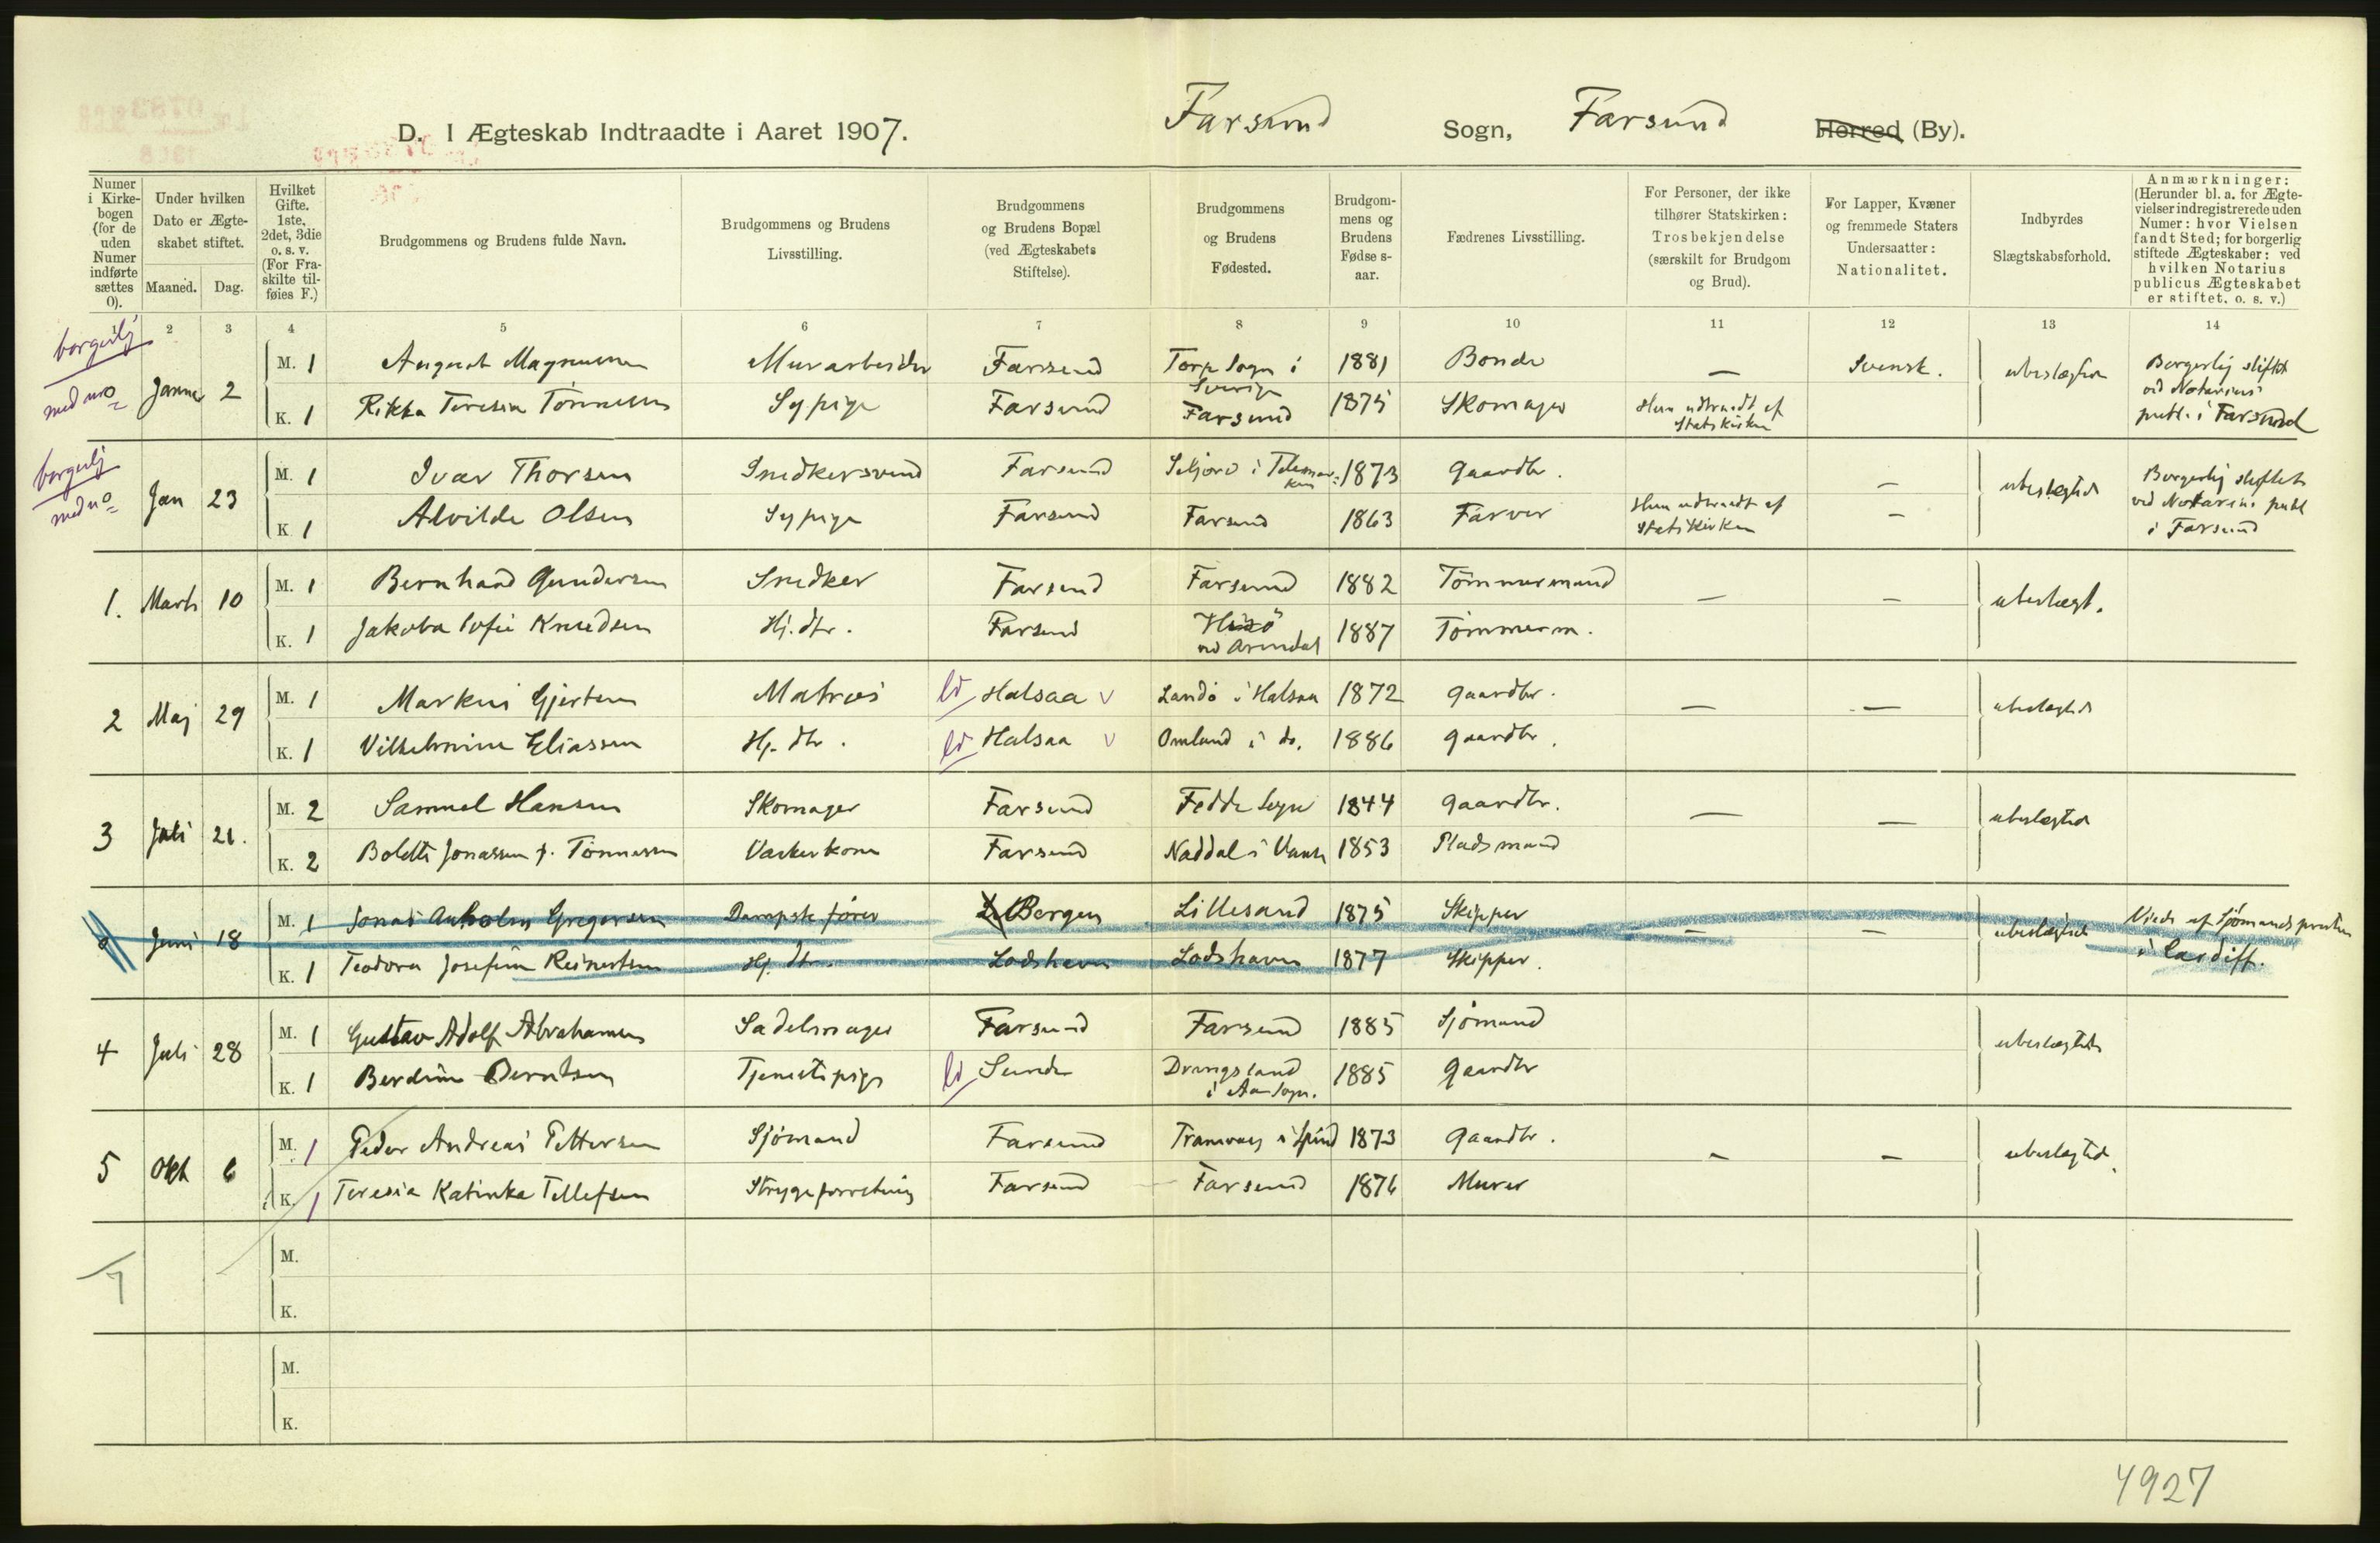 D. I Ægteskab Indtraadte i Aaret 1907. Farsund Sogn, Farsund Herred (By).
Numer i Kirkebogen (for de uden Numer indførte sættes 0).
Under hvilken Dato er Ægteskabet stiftet.
Maaned. Dag.
Hvilket Gifte. 1ste, 2det, 3die o. s. v. (For Fraskilte tilføies F.)
Brudgommens og Brudens fulde Navn.
Brudgommens og Brudens Livsstilling.
Brudgommens og Brudens Bopæl (ved Ægteskabets Stiftelse).
Brudgommens og Brudens Fødested.
Brudgommens og Brudens Fødselsaar.
Fædrenes Livsstilling.
For Personer, der ikke tilhører Statskirken: Trosbekjendelse (særskilt for Brudgom og Brud).
For Lapper, Kvæner og fremmede Staters Undersaatter: Nationalitet.
Indbyrdes Slægtskabsforhold.
Anmærkninger: (Herunder bl. a. for Ægtevielser indregistrerede uden Numer: hvor Vielsen fandt Sted; for borgerlig stiftede Ægteskaber: ved hvilken Notarius publicus Ægteskabet er stiftet, o. s. v.)
1 2 3 4 5 6 7 8 9 10 11 12 13 14
borgerlig
Januar 2
M. 1 August Magnussen Murarbeider Farsund Torp Sogn i Sverige 1881 Bonde — Svensk. ubeslægtet
K. 1 Rikka Teresia Tönnessen Sypige Farsund Farsund 1875 Skomager Hun udtraadt af Statskirken
Borgerlig stiftet
ved Notarius
publ. i Farsund
borgerlig
Jan 23
M. 1 Ivar Thorsen Snedkersvend Farsund Seljord i Telemarken 1873 Gaardbr. — ubeslægtet
K 1 Alvilde Olsen Sypige Farsund Farsund 1863 Farver Hun udtraadt af Statskirken —
Borgerlig stiftet
ved Notarius publ
i Farsund
1. Marts 10
M. 1 Bernhard Gundersen Snedker Farsund Farsund 1882 Tömmermand — — ubeslægt.
K. 1 Jakoba Sofie Knudsen Hj. dtr. Farsund Hisö ved Arendal 1887 Tömmerm.
2 Maj 29
M. 1 Markus Gjertsen Matros ld Halsaa v Landö i Halsaa 1872 Gaardbr. — — ubeslægtet
K. 1 Vilhelmine Eliassen Hj. dtr. ld Halsaa v Omland i do. 1886 Gaardbr.
3 Juli 21.
M. 2 Samuel Hansen Skomager Farsund Fedde Sogn 1844 Gaardbr. — — ubeslægtet
K. 2 Bolette Jonassen f. Tönnesen Vaskerkone Farsund Naddal i Vanse 1853 Pladsmand
Juni 18
M. 1 Jonas Anholm Gregersen Dampsk. förer Bergen Lillesand 1875 Skipper — — ubeslægtet
K. 1 Teodora Josefine Reinertsen Hj. dtr. Lodshavn Lodshavn 1877 Skipper.
Viede af Sjömandspresten
i Cardiff.
4 Juli 28
M. 1 Gustav Adolf Abrahamsen Sadelmager Farsund Farsund 1885 Sjömand ubeslægtet
K. 1 Berdine Berntsen Tjenestepige ld Sunde Drangsland i Aa Sogn. 1885 Gaardbr
5 Okt 6
M. 1 Peder Andreas Pettersen Sjömand Farsund i Spind 1873 Gaardbr. — — ubeslægtet.
K. 1 Teresia Katinka Tellefsen Strygeforretning Farsund Farsund 1876 Murer
7
M.
K.
M.
K.
4927